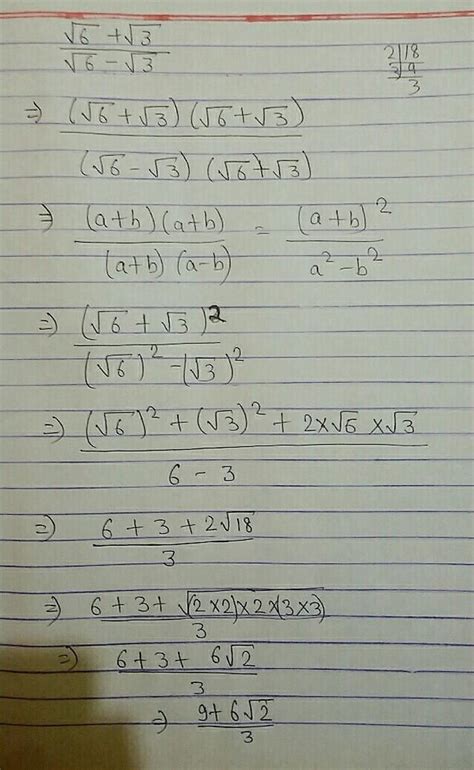 (√6 + √3) / (√6 − √3)
2|18
3|9
3
⇒ (√6 + √3) (√6 + √3) / (√6 − √3) (√6 + √3)
⇒ (a+b) (a+b) / (a+b) (a−b) = (a+b)² / a² − b²
⇒ (√6 + √3)² / (√6)² − (√3)²
⇒ (√6)² + (√3)² + 2×√6 ×√3 / 6 − 3
⇒ 6 + 3 + 2√18 / 3
⇒ 6 + 3 + √(2×2)×2×(3×3) / 3
⇒ 6 + 3 + 6√2 / 3
⇒ 9 + 6√2 / 3